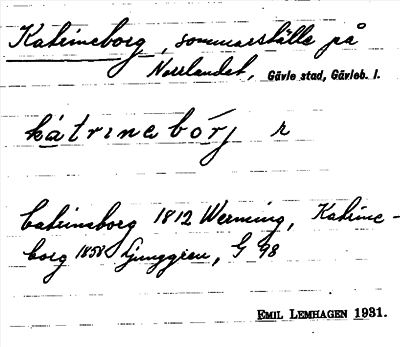 Katrineborg, sommarställe på
Norrlandet, Gävle stad, Gävleb. l.
kátrinabórj r
Catrinsborg 1812 Werming, Katrine-
borg 1858 Ljunggren, G 98
EMIL LEMHAGEN 1931.